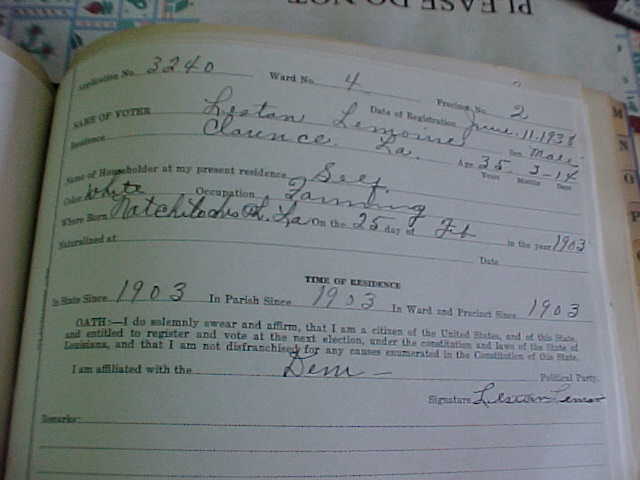 PLEASE DO NOT
Application No. 3240 Ward No. 4 Precinct No. 2
NAME OF VOTER Lestan Lemoine Date of Registration June 11, 1938
Residence Clarence, La. Sex Male
Age 35 3-14
Years Months Days
Name of Householder at my present residence Self
Color White Occupation Farming
Where Born Natchitoches La On the 25 day of Feb in the year 1903
Naturalized at Date
TIME OF RESIDENCE
In State Since 1903 In Parish Since 1903 In Ward and Precinct Since 1903
OATH:—I do solemnly swear and affirm, that I am a citizen of the United States, and of this State,
and entitled to register and vote at the next election, under the constitution and laws of the State of
Louisiana, and that I am not disfranchised for any causes enumerated in the Constitution of this State.
I am affiliated with the Dem — Political Party.
Signature Lestan Lemoine
Remarks:
M
N
O
P